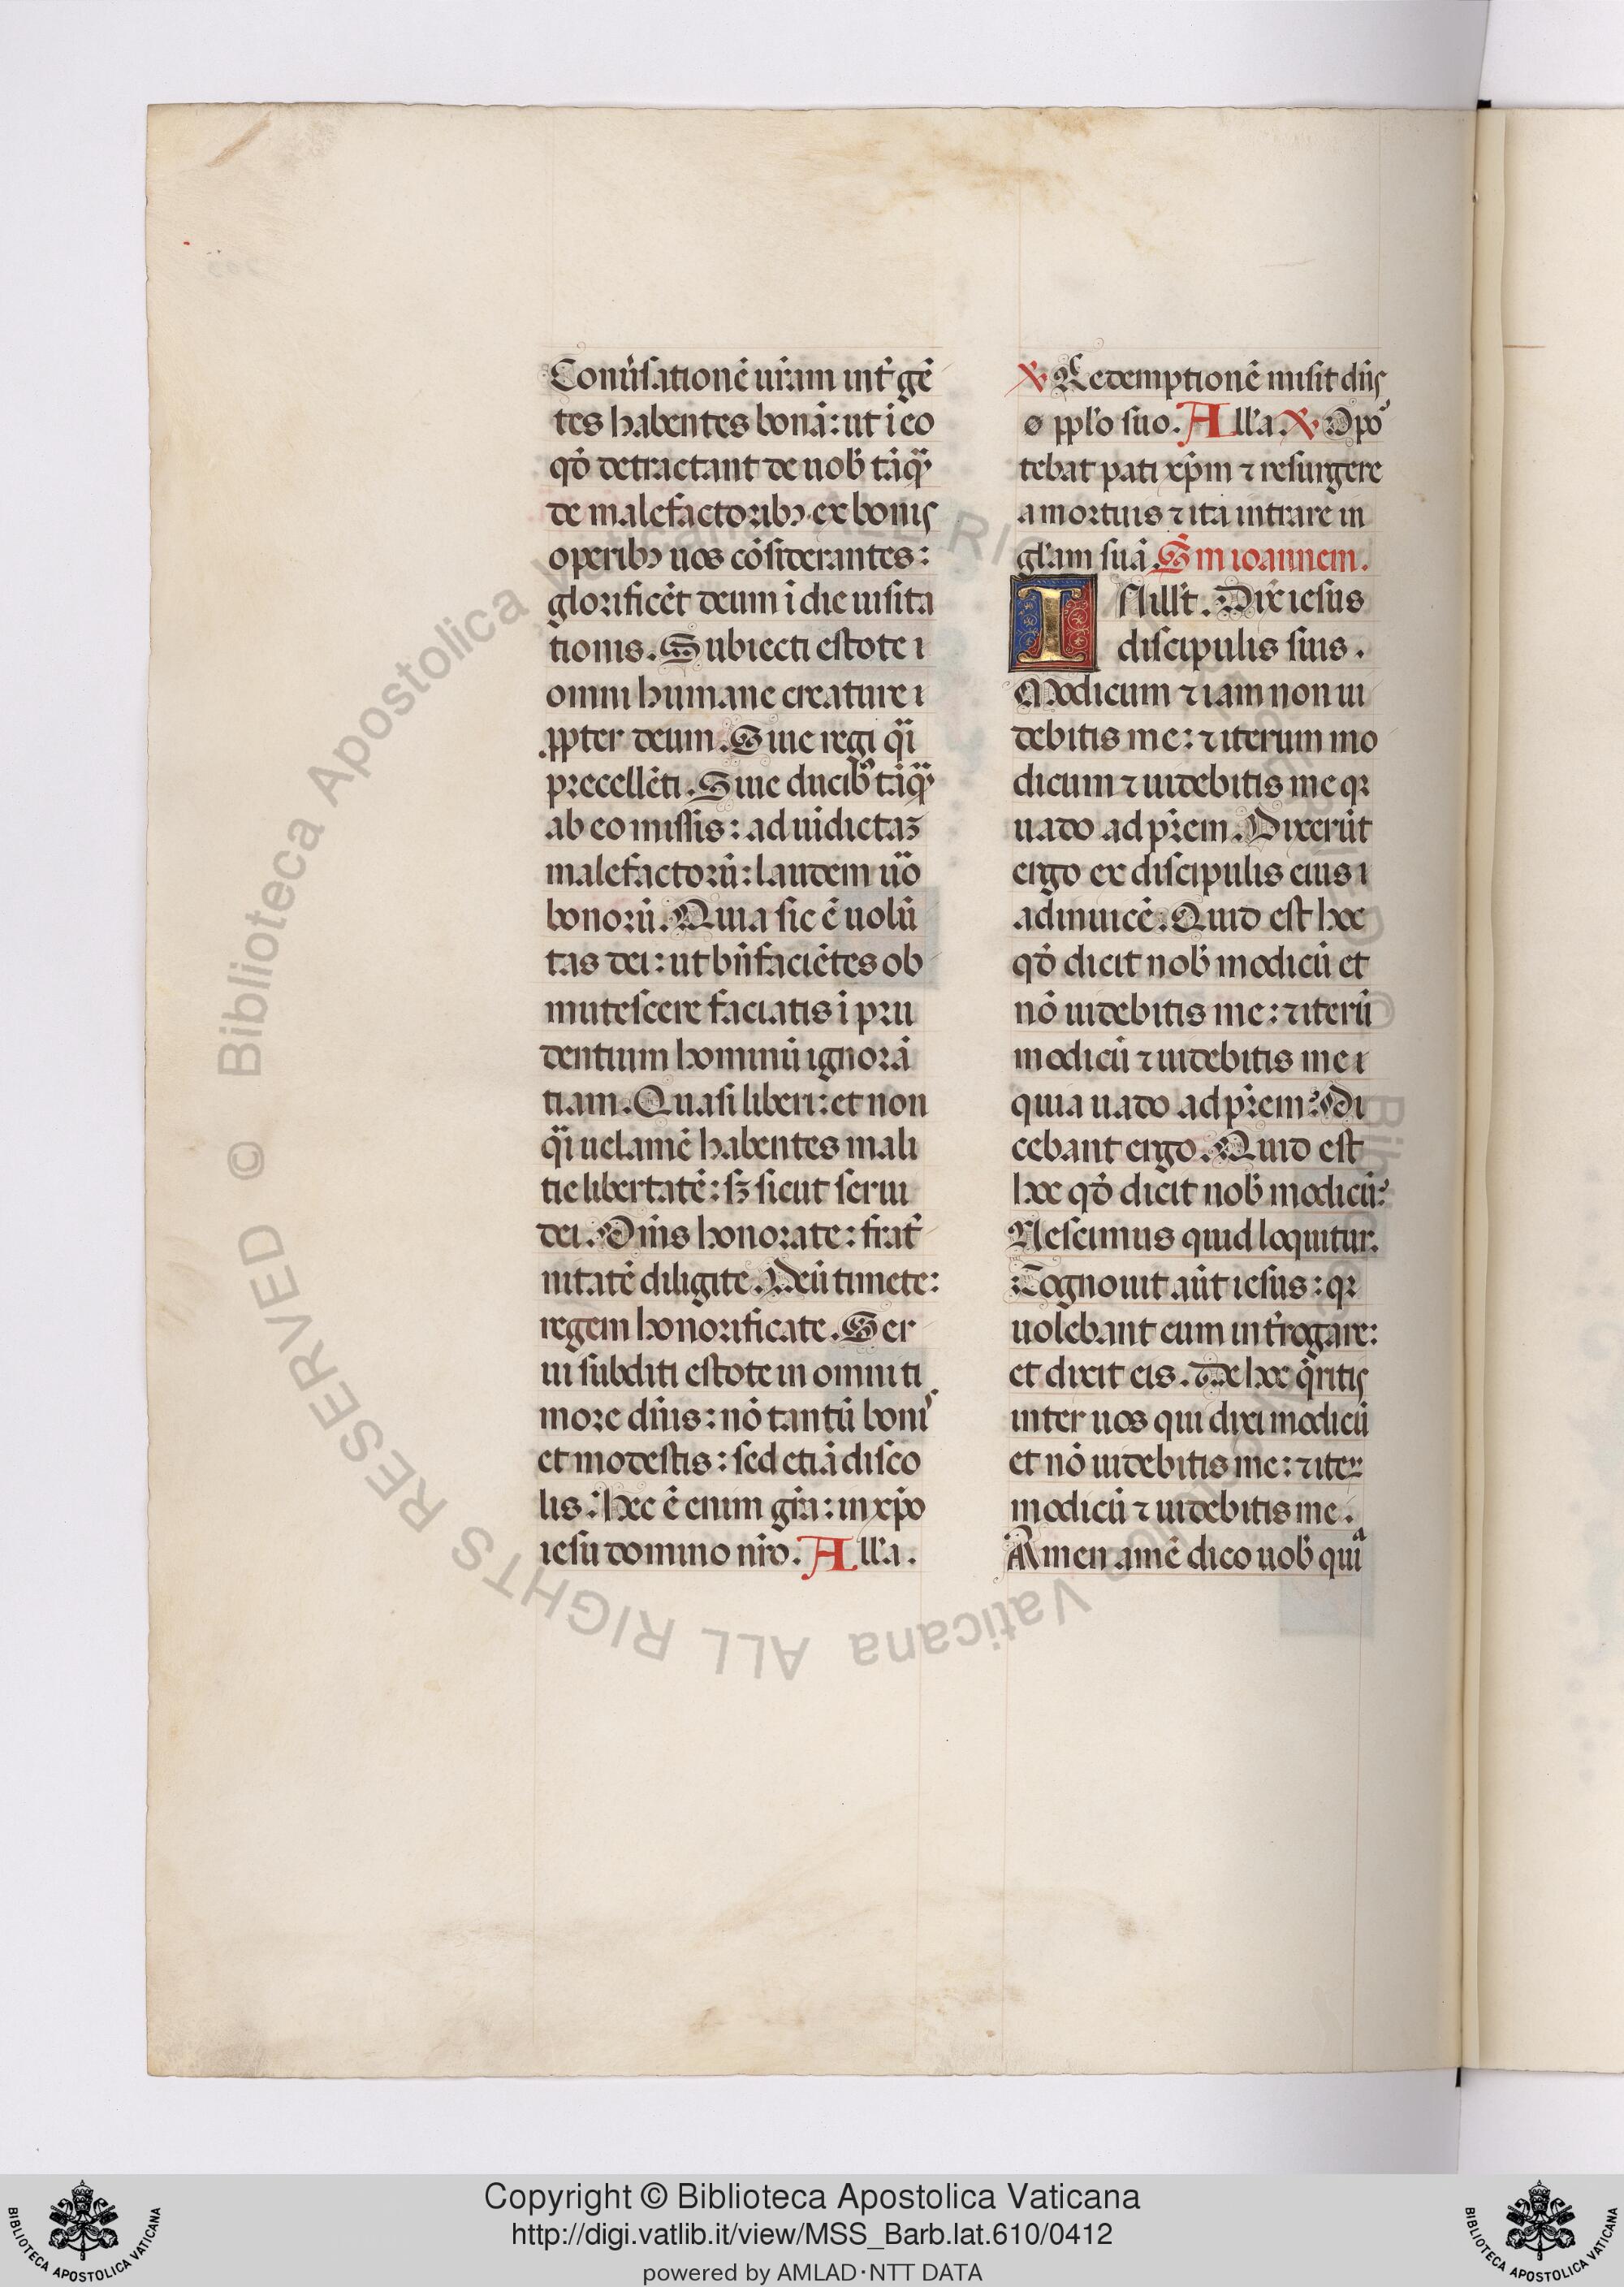 Conűsationē uřam int̄ gē
tes habentes bonā: ut ī eo
qđ detractant de uob̄ tāq̃
de malefactoribꝫ. ex bonis
operibꝫ uos cōsiderantes:
glorificēt deum ī die uisita
tionis. Subiecti estote ı
omni humane creature ı
ꝓpter deum. Siue regi q̄i
precellēti. Siue ducib̄ tāq̃
ab eo missis: ad uīdictaꝫ
malefactorū: laudem űo
bonorū. Quia sic ē uolū
tas dei: ut bn̄faciētes ob
mutescere faciatis īpru
dentium hominū ignorā
tiam. Quasi liberi: et non
q̄i uelamē habentes mali
tie libertatē: sꝫ sicut serui
dei. Oīns honorate: frat̄
nitatē diligite. Deū timete:
regem honorificate. Ser
ui subditi estote in omni ti
more dn̄is: nō tantū boniˢ
et modestis: sed etiā disco
lis. Hec ē enim gr̄a: in xp̄o
iesu domino nr̄o. All'a.
℣ Redemptionē misit dn̄s
ø pplo suo. All'a. ℣ Opoꝛ
tebat pati xp̄m ⁊ resurgere
a mortuis ⁊ ita intrare in
gl'am suā. Sm̄ ioannem.
IN ill't. Dix̄ iesus
discipulis suis.
Modicum ⁊ iam non ui
debitis me: ⁊ iterum mo
dicum ⁊ uidebitis me qꝛ
uado ad pr̄em. Dixerūt
ergo ex discipulis eius ı
adinuicē. Quid est hoc
qđ dicit nob̄ modicū et
nō uidebitis me: ⁊ iterū
modicū ⁊ uidebitis me ı
quia uado ad pr̄em? Di
cebant ergo. Quid est
hoc qđ dicit nob̄ modicū?
Nescimus quid loquitur.
Cognouit aūt iesus: qꝛ
uolebant eum int̄rogare:
et dixit eis. De hoc q̄ritis
inter uos qui dixi modicū
et nō uidebitis me: ⁊ iteꝝ
modicū ⁊ uidebitis me.
Amen amē dico uob̄ quiᵃ
© Biblioteca Apostolica Vaticana ALL RIGHTS RESERVED
Copyright © Biblioteca Apostolica Vaticana
http://digi.vatlib.it/view/MSS_Barb.lat.610/0412
powered by AMLAD·NTT DATA
BIBLIOTECA APOSTOLICA VATICANA
BIBLIOTECA APOSTOLICA VATICANA